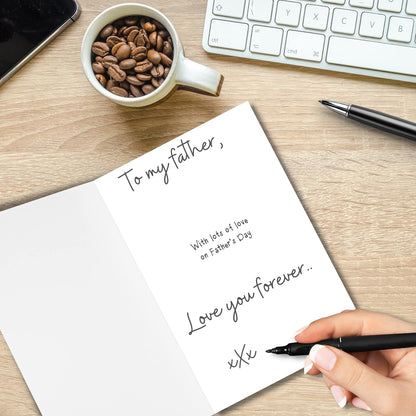 Y X C V B
cmd
To my father,
With lots of love
on Father's Day
Love you forever..
xXx